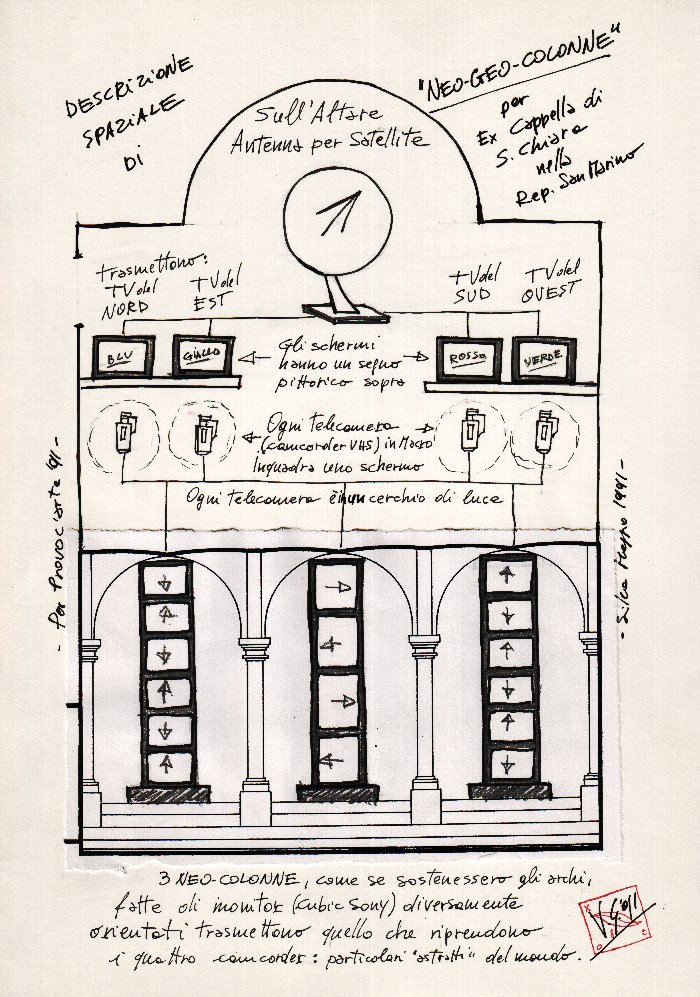 DESCRIZIONE
SPAZIALE
DI
"NEO-GEO-COLONNE"
per
Ex Cappella di
S. Chiara
nella
Rep. San Marino
Sull'Altare
Antenna per Satellite
trasmettono:
TV del
NORD
TV del
EST
TV del
SUD
TV del
OVEST
BLU
GIALLO
ROSSO
VERDE
Gli schermi
hanno un segno
pittorico sopra
Ogni telecamera
(camcorder VHS) in Macro
Inquadra uno schermo
Ogni telecamera è in un cerchio di luce
- Per Provoc'arte 91 -
1991 -
3 NEO-COLONNE, come se sostenessero gli archi,
fatte di monitor (Cubic Sony) diversamente
orientati trasmettono quello che riprendono
i quattro camcorder: particolari "astratti" del mondo.